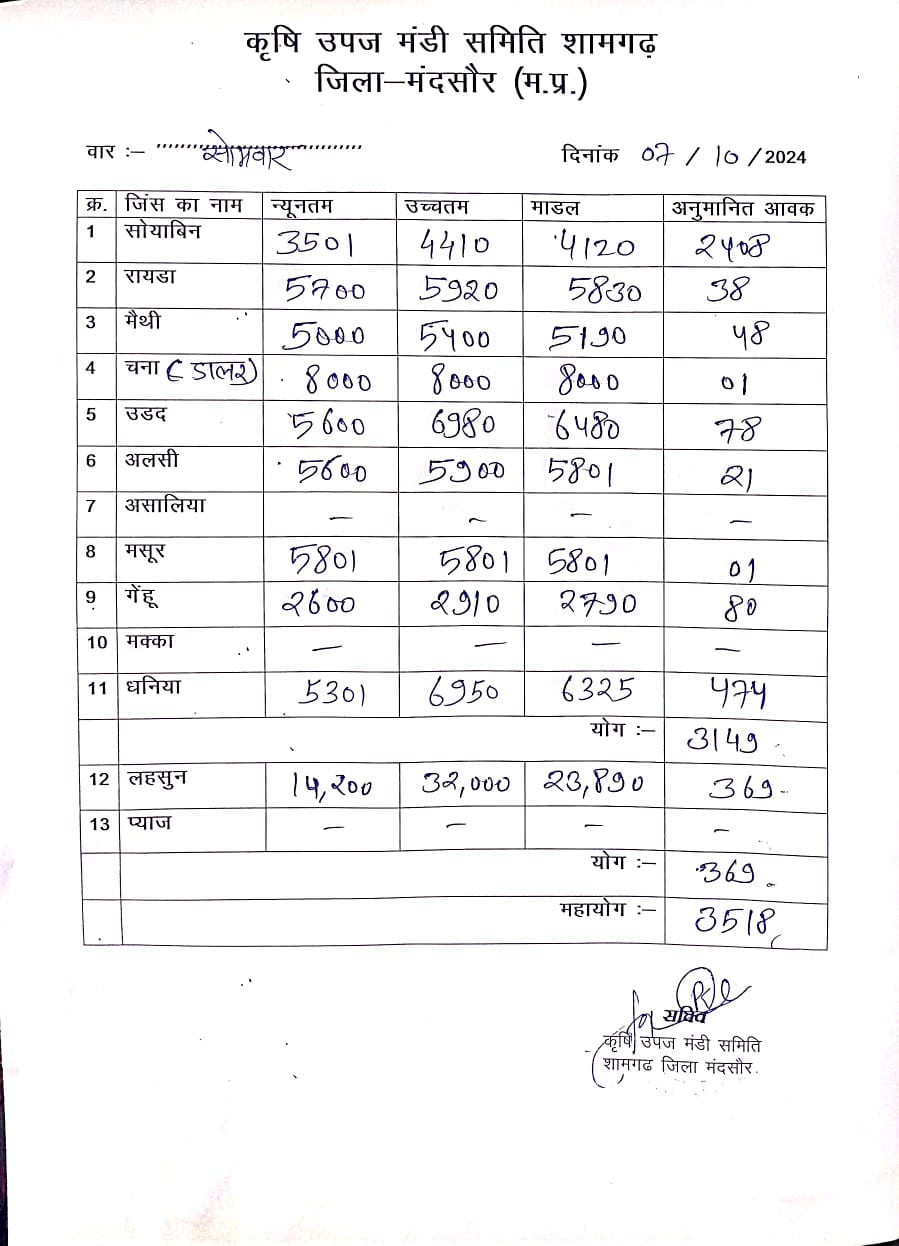 कृषि उपज मंडी समिति शामगढ़
जिला–मंदसौर (म.प्र.)
वार :– सोमवार दिनांक 07 / 10 / 2024
क्र. जिंस का नाम न्यूनतम उच्चतम माडल अनुमानित आवक
1 सोयाबिन 3501 4410 4120 2408
2 रायडा 5700 5920 5830 38
3 मैथी 5000 5400 5190 48
4 चना (डालर) 8000 8000 8000 01
5 उडद 5600 6980 6480 78
6 अलसी 5600 5900 5801 21
7 असालिया – – – –
8 मसूर 5801 5801 5801 01
9 गेंहू 2600 2910 2790 80
10 मक्का – – – –
11 धनिया 5301 6950 6325 474
योग :– 3149
12 लहसुन 14,200 32,000 23,890 369
13 प्याज – – – –
योग :– 369
महायोग :– 3518
सचिव
कृषि उपज मंडी समिति
शामगढ जिला मंदसौर.